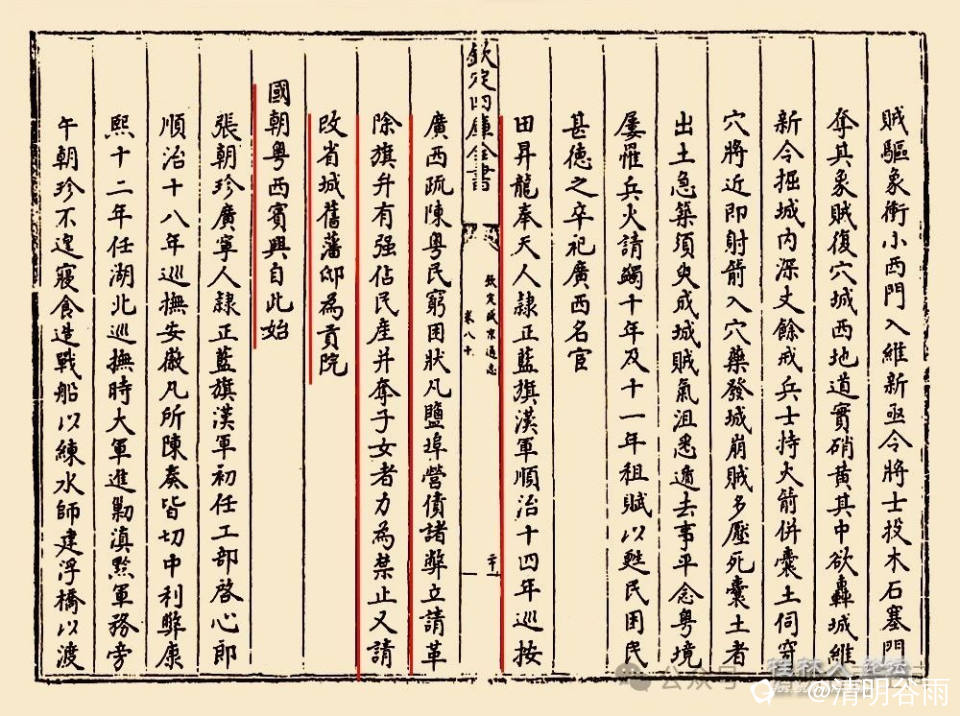 賊驅象衝小西門入維新亟令將士投木石塞門
奪其象賊復穴城西地道實硝黄其中欲轟城維
新令掘城内深丈餘戒兵士持火箭併囊土伺穿
穴將近即射箭入穴藥發城崩賊多壓死囊土者
出土急築須臾成城賊氣沮悉遁去事平念粤境
屢罹兵火請蠲十年及十一年租賦以甦民困民
甚德之卒祀廣西名宦
田昇龍奉天人隷正藍旗漢軍順治十四年巡按
欽定四庫全書
欽定盛京通志
卷八十
二十
廣西疏陳粤民窮困狀凡鹽埠營債諸弊立請革
除旗弁有强佔民産并奪子女者力為禁止又請
改省城舊藩邸為貢院
國朝粤西賓興自此始
張朝珍廣寧人隷正藍旗漢軍初任工部啓心郎
順治十八年巡撫安徽凡所陳奏皆切中利弊康
熙十二年任湖北巡撫時大軍進勦滇黔軍務旁
午朝珍不遑寢食造戰船以練水師建浮橋以渡
公众号
桂林人论坛
@清明谷雨